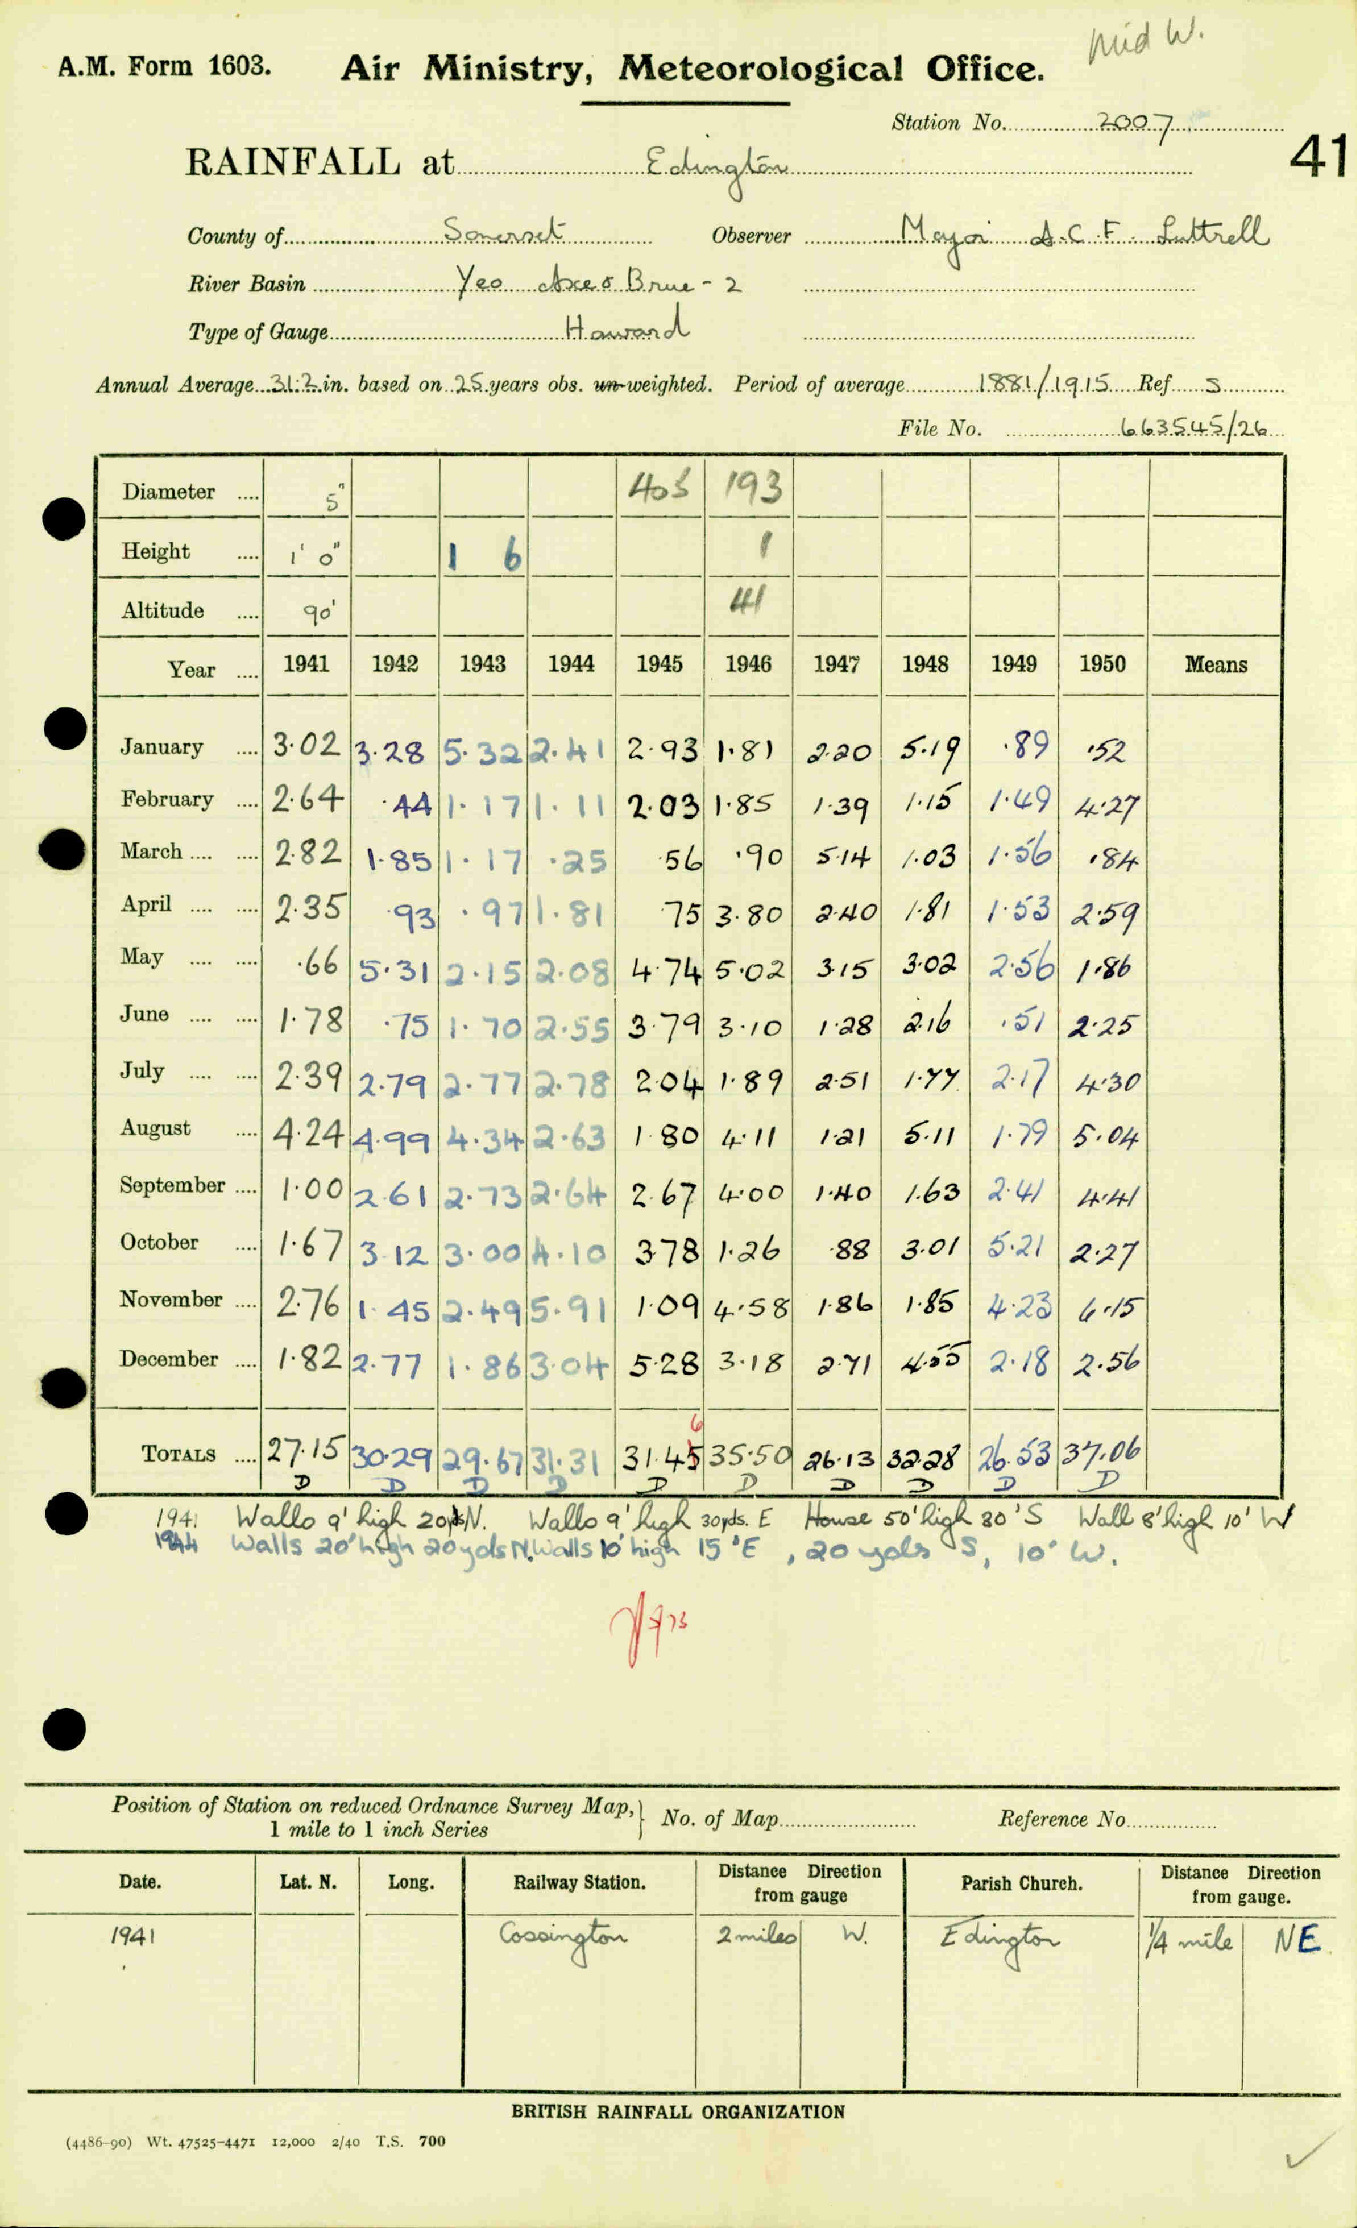 Mid W.
A.M. Form 1603. Air Ministry, Meteorological Office.
Station No. 2007
41
RAINFALL at Edington
County of Somerset Observer Major A.C.F. Luttrell
River Basin Yeo Axe & Brue - 2
Type of Gauge Howard
Annual Average 31.2 in. based on 25 years obs. un-weighted. Period of average 1881/1915 Ref S
File No. 663545/26
Diameter .... 5" 403 193
Height .... 1' 0" 1 6 1
Altitude .... 90' 41
Year .... 1941 1942 1943 1944 1945 1946 1947 1948 1949 1950 Means
January .... 3.02 3.28 5.32 2.41 2.93 1.81 2.20 5.19 .89 .52
February .... 2.64 .44 1.17 1.11 2.03 1.85 1.39 1.15 1.49 4.27
March .... .... 2.82 1.85 1.17 .25 .56 .90 5.14 1.03 1.56 .84
April .... .... 2.35 .93 .97 1.81 .75 3.80 2.40 1.81 1.53 2.59
May .... .... .66 5.31 2.15 2.08 4.74 5.02 3.15 3.02 2.56 1.86
June .... .... 1.78 .75 1.70 2.55 3.79 3.10 1.28 2.16 .51 2.25
July .... .... 2.39 2.79 2.77 2.78 2.04 1.89 2.51 1.77 2.17 4.30
August .... 4.24 4.99 4.34 2.63 1.80 4.11 1.21 5.11 1.79 5.04
September .... 1.00 2.61 2.73 2.64 2.67 4.00 1.40 1.63 2.41 4.41
October .... 1.67 3.12 3.00 4.10 3.78 1.26 .88 3.01 5.21 2.27
November .... 2.76 1.45 2.49 5.91 1.09 4.58 1.86 1.85 4.23 6.15
December .... 1.82 2.77 1.86 3.04 5.28 3.18 2.71 4.55 2.18 2.56
6
TOTALS .... 27.15 30.29 29.67 31.31 31.45 35.50 26.13 32.28 26.53 37.06
D D D D D D D D D D
1941 Walls 9' high 20yds N. Walls 9' high 30yds. E House 50' high 30' S Wall 8' high 10' W
1944 Walls 20' high 20 yds N. Walls 10' high 15' E, 20 yds S, 10' W.
Position of Station on reduced Ordnance Survey Map, } No. of Map Reference No.
1 mile to 1 inch Series
Date. Lat. N. Long. Railway Station. Distance Direction from gauge Parish Church. Distance Direction from gauge.
1941 Cossington 2 miles W. Edington 1/4 mile NE.
BRITISH RAINFALL ORGANIZATION
(4486-90) Wt. 47525-4471 12,000 2/40 T.S. 700